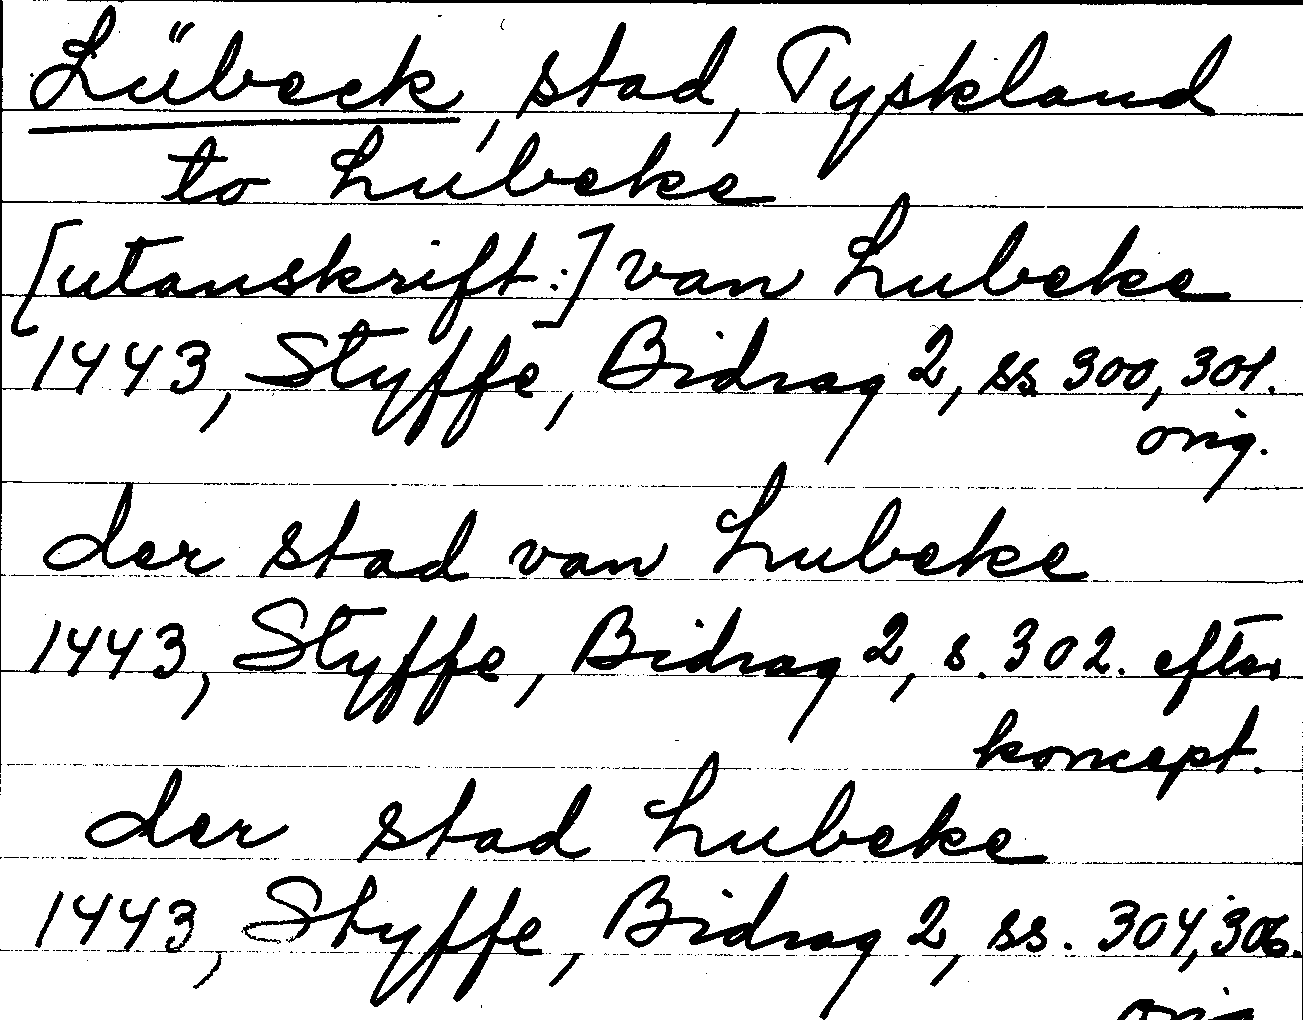 Lübeck, stad, Tyskland
to Lubeke
[utanskrift:] van Lubeke
1443, Styffe, Bidrag 2, ss 300, 301.
orig.
der stad van Lubeke
1443, Styffe, Bidrag 2, s. 302. efter
koncept.
der stad Lubeke
1443, Styffe, Bidrag 2, ss. 304, 306.
orig